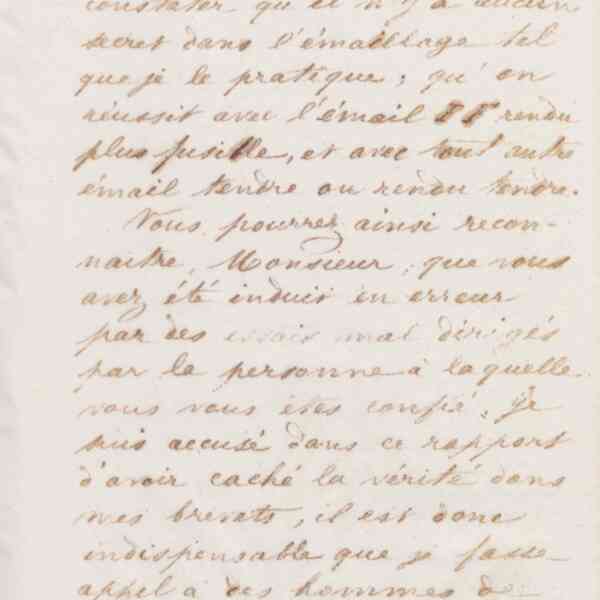 constater qu'il n'y a aucun
secret dans l'émaillage tel
que je le pratique; qu'on
réussit avec l'émail rendu
plus fusible, et avec tout autre
émail tendre ou rendu tendre.
Vous pourrez ainsi recon-
naitre, Monsieur, que vous
avez été induit en erreur
par des essais mal dirigés
par la personne à laquelle
vous vous êtes confié. Je
suis accusé dans ce rapport
d'avoir caché la vérité dans
mes brevets, il est donc
indispensable que je fasse
appel à des hommes de